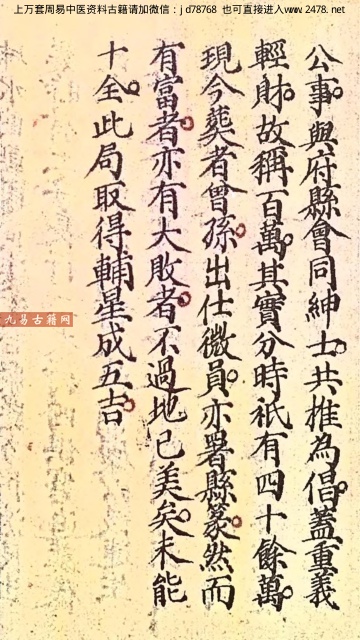 上万套周易中医资料古籍请加微信：jd78768 也可直接进入www.2478.net
公事與府縣會同紳士共推為倡蓋重義
輕財故稱百萬其實分時祇有四十餘萬
現今葬者曾孫出仕微員亦署縣篆然而
有富者亦有大敗者不過地已美矣未能
十全此局取得輔星成五吉
九易古籍网